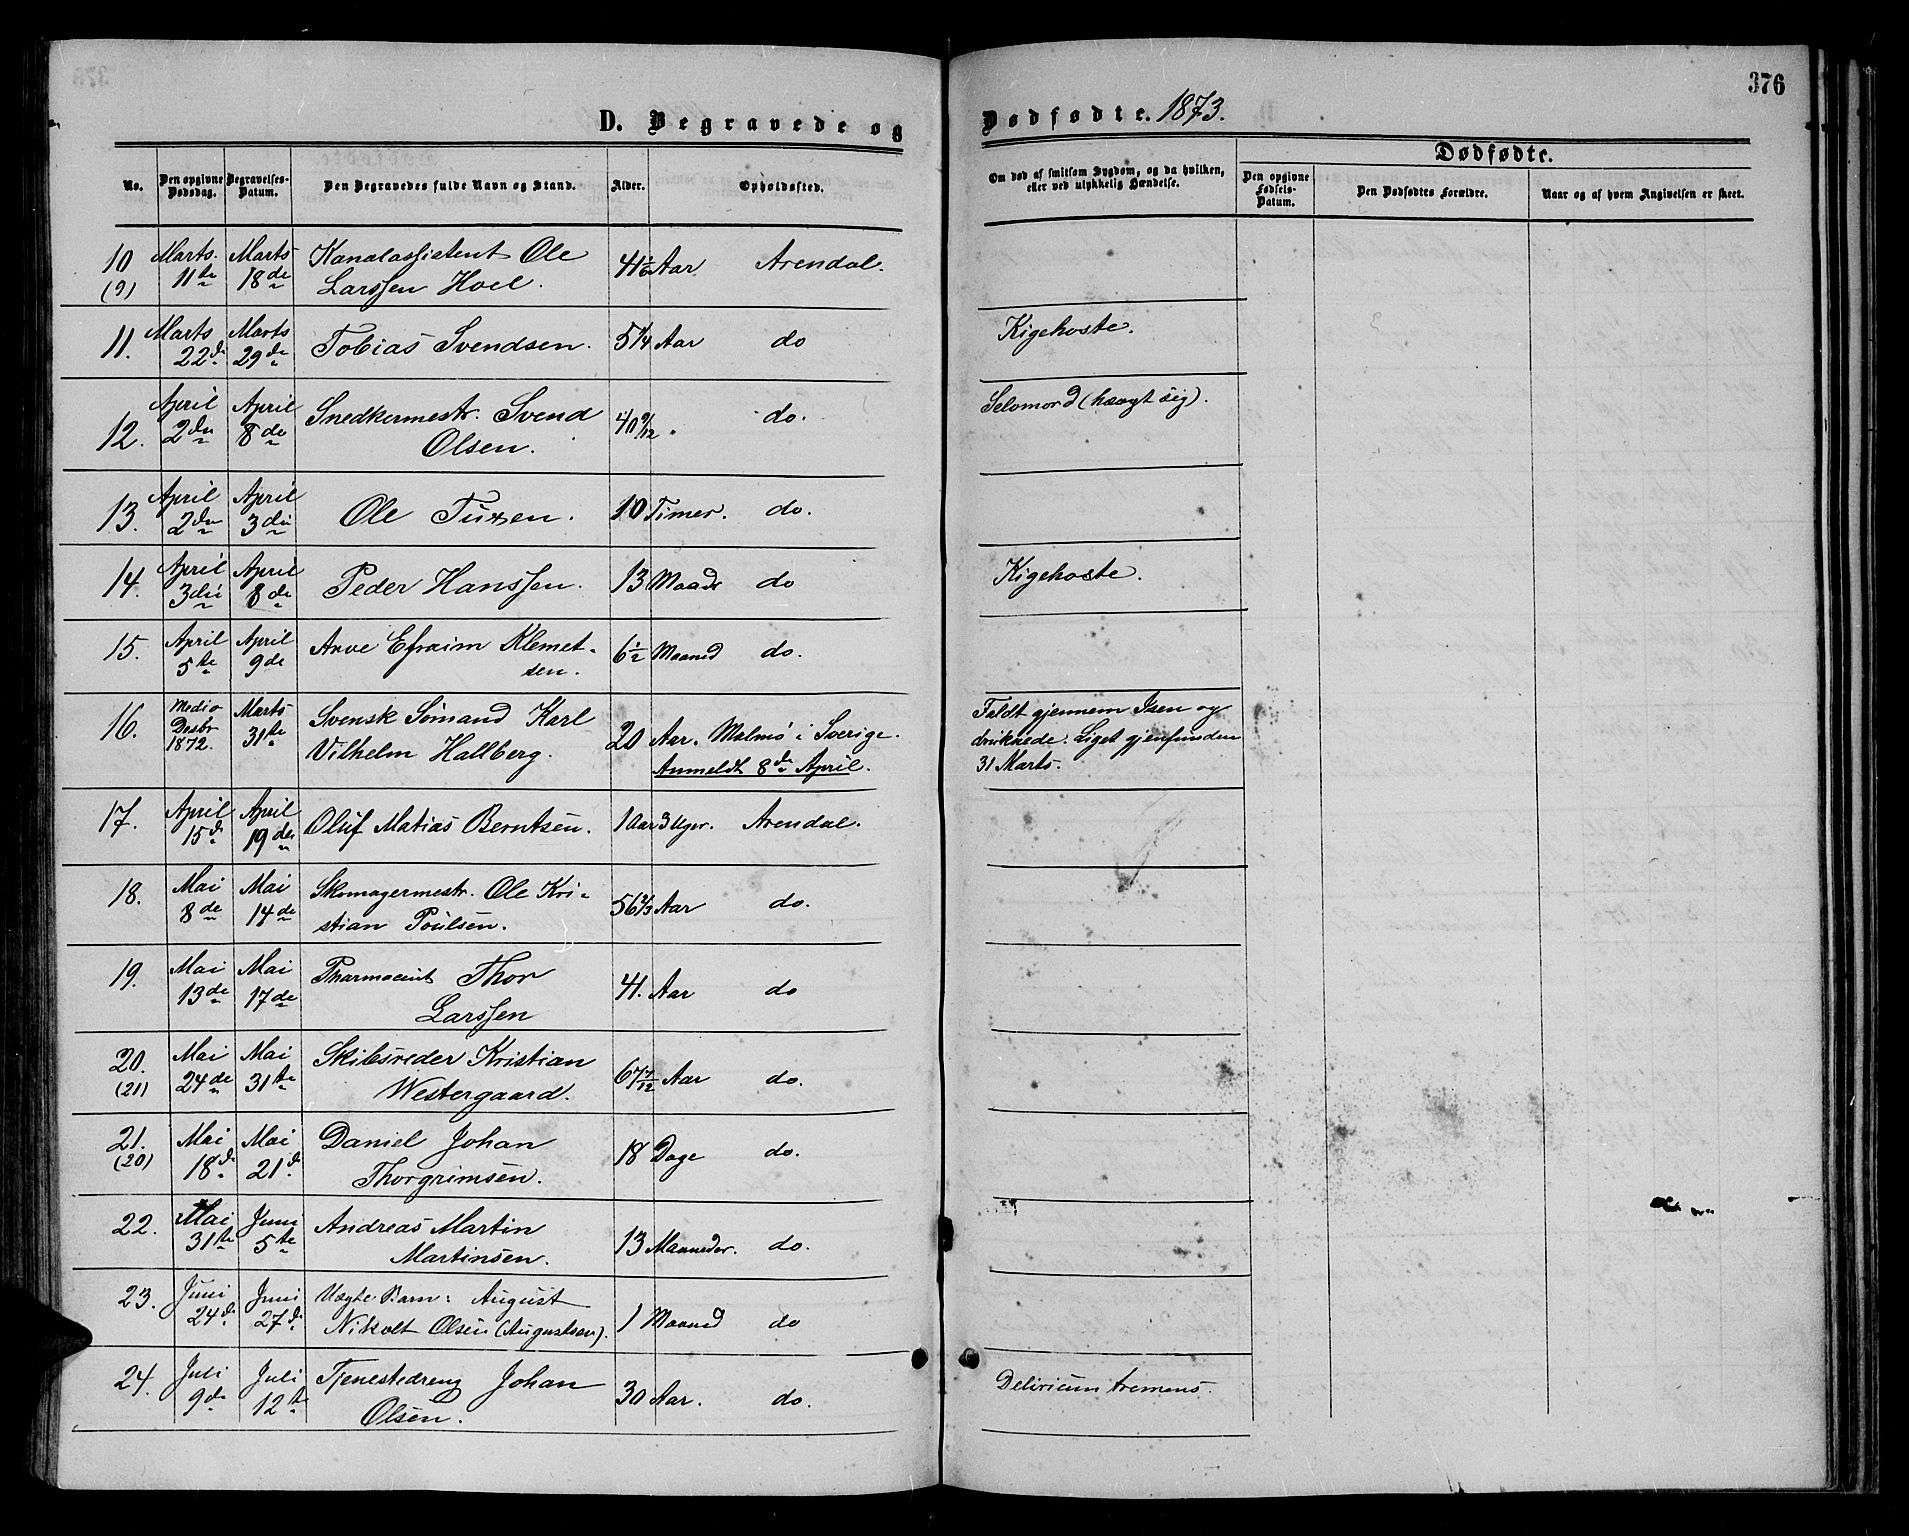 376
D. Begravede og Dødfødte. 1873.
No.
Den opgivne Dødsdag.
Begravelses-Datum.
Den Begravedes fulde Navn og Stand.
Alder.
Opholdssted.
Om død af smitsom Sygdom, og da hvilken, eller ved ulykkelig Hændelse.
Dødfødte.
Den opgivne Fødsels-Datum.
Den Dødfødtes Forældre.
Naar og af hvem Angivelsen er skeet.
10 (9) Marts 11te Marts 18de Kanalassistent Ole Larssen Hoel. 41 Aar Arendal.
11. Marts 22de Marts 29de Tobias Svendsen. 5 1/4 Aar do Kigehoste.
12. April 2den April 8de Snedkermestr. Svend Olsen. 40 9/12 do. Selomord (hængt sig).
13. April 2den April 3die Ole Tuxen. 10 Timer. do.
14. April 3die April 8de Peder Hanssen. 13 Maadr do Kigehoste.
15. April 5te April 9de Arve Efraim Klemetsen. 6 1/2 Maaned do.
16. Medio Desbr 1872. Marts 31te Svensk Sømand Karl Vilhelm Hallberg. 20 Aar. Malmö i Sverige. Anmeldt 8de April. Faldt gjennem Isen og druknede. Liget gjenfunden 31 Marts.
17. April 15de April 19de Oluf Matias Berntsen. 1 Aar 3 Uger. Arendal.
18. Mai 8de Mai 14de Skomagermestr. Ole Kristian Poulsen. 56 2/3 Aar do.
19. Mai 13de Mai 17de Pharmaceut Thor Larssen 41. Aar do
20. (21) Mai 24de Mai 31te Skibsreder Kristian Westergaard. 67 7/12 Aar do.
21. (20) Mai 18de Mai 21de Daniel Johan Thorgrimsen. 18 Dage do.
22. Mai 31te Juni 5te Andreas Martin Martinsen. 13 Maaneder. do.
23. Juni 24de Juni 27de Uægte Barn: August Nikolt Olsen (Augustsen). 1 Maaned do
24. Juli 9de Juli 12te Tjenestedreng Johan Olsen. 30 Aar. do. Delirium tremens.